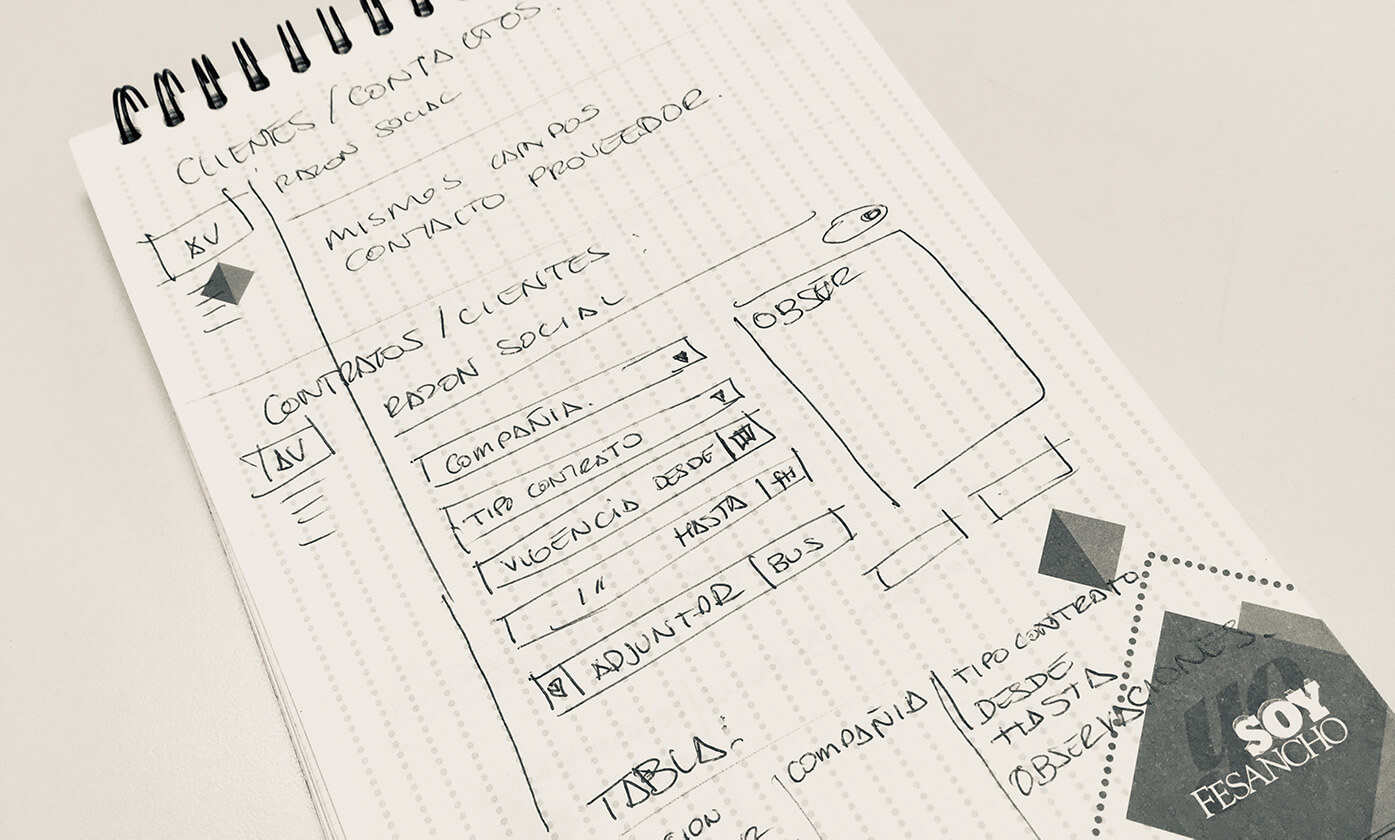 CLIENTES / CONTACTOS :
RAZON SOCIAL
MISMOS CAMPOS
CONTACTO PROVEEDOR.
CONTRATOS / CLIENTES :
RAZON SOCIAL
AV
OBSER
COMPAÑIA.
TIPO CONTRATO
VIGENCIA DESDE
" HASTA
ADJUNTAR BUS
TABLA:
COMPAÑIA
TIPO CONTRATO
DESDE
HASTA
OBSERVACIONES.
SOY
FESANCHO